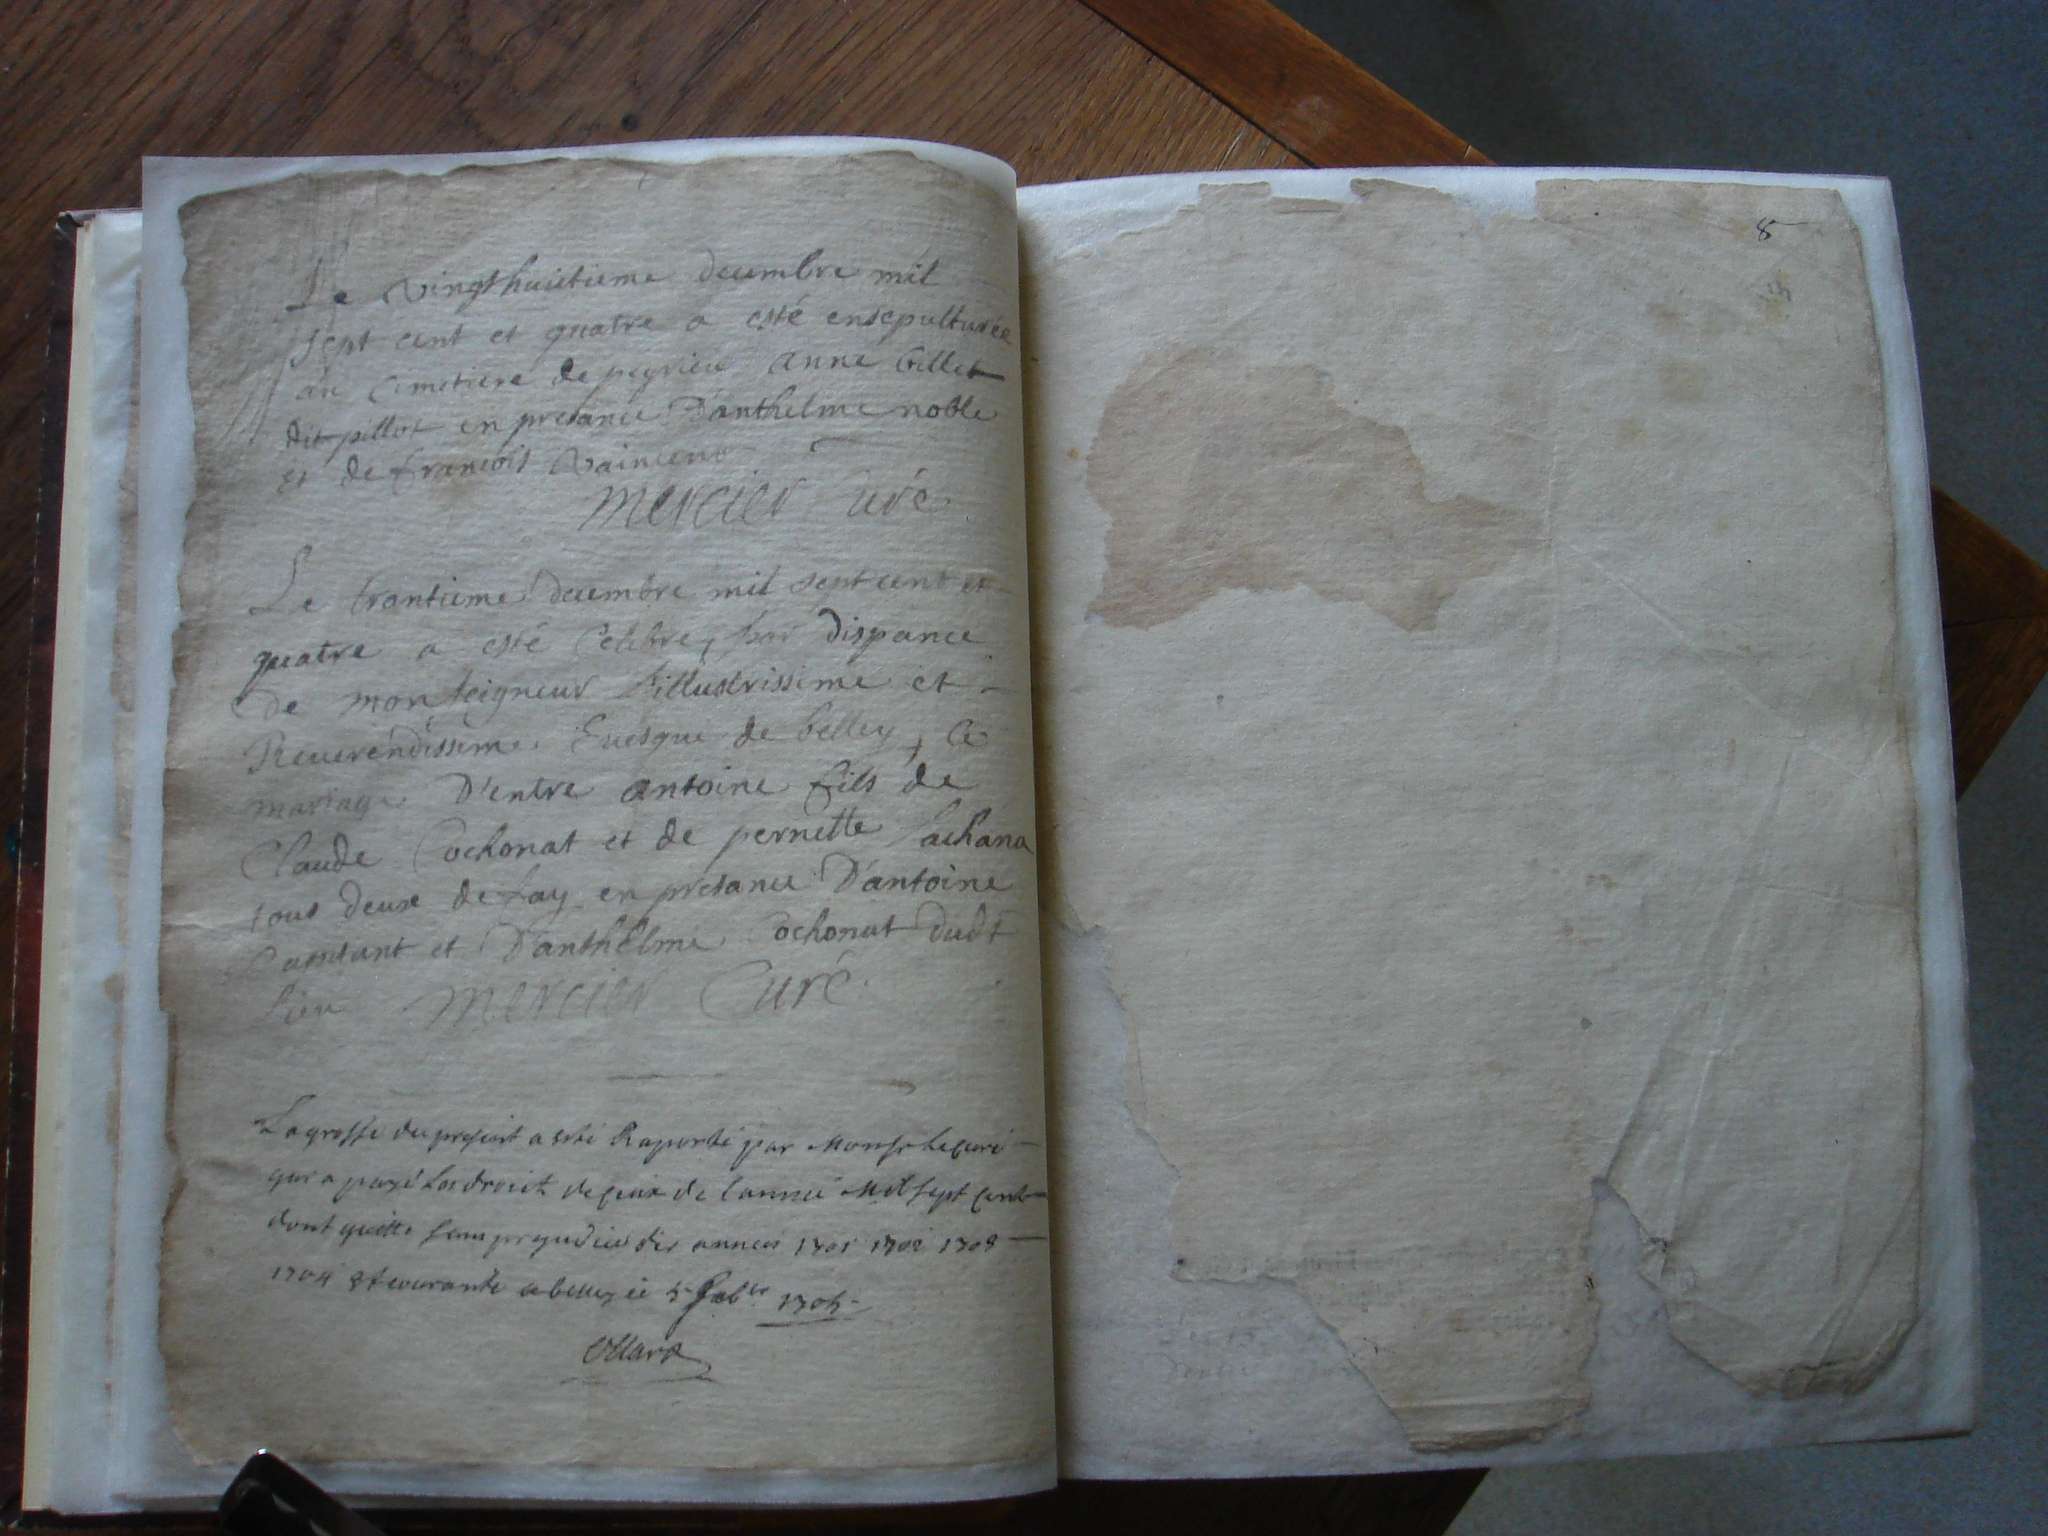 Le vingthuictieme decembre mil
sept cent et quatre a esté ensepulturée
au cimetiere de peyrieu anne billet
dit pillot en presance D'anthelme noble
et de francois
mercier curé.
Le trantieme decembre mil sept cent et
quatre a esté Celebre, par dispance
de monseigneur l'illustrissime et
Reverendissime Evesque de belley, le
mariage D'entre antoine fils de
Claude Cochonat et de pernette Lachana
tous deux de fay en presance D'antoine
et D'anthelme Cochonat dudt
lieu mercier Curé.
La grosse du present a esté Raporté par Monsr le curé
qui a payé les droict de ceux de l'année Mil sept cent
dont quitte sans prejudice des annees 1701 1702 1703
1704 et courante a belley ce 5 febver 1705
8